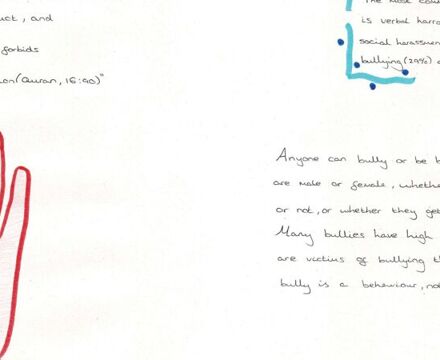 uct, and
forbids
on (Quran, 16:90)"
The most
is verbal harra
social harassmen
bullying (29%)
Anyone can bully or be b
are male or female, whethe
or not, or whether they get
Many bullies have high
are victims of bullying th
bully is a behaviour, not